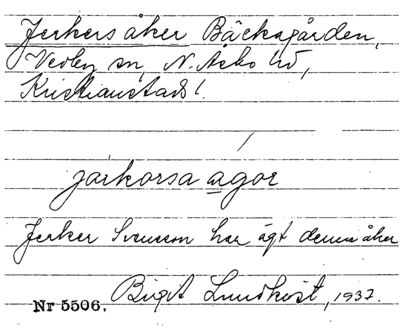 Jerkers åker Bäckagården,
Verley sn, N. Åsbo hd,
Kristianstads l.
järkorsa agor
Jerker Svensson har ägt denna åker
Birgit Lundkvist, 1937.
Nr 5506.